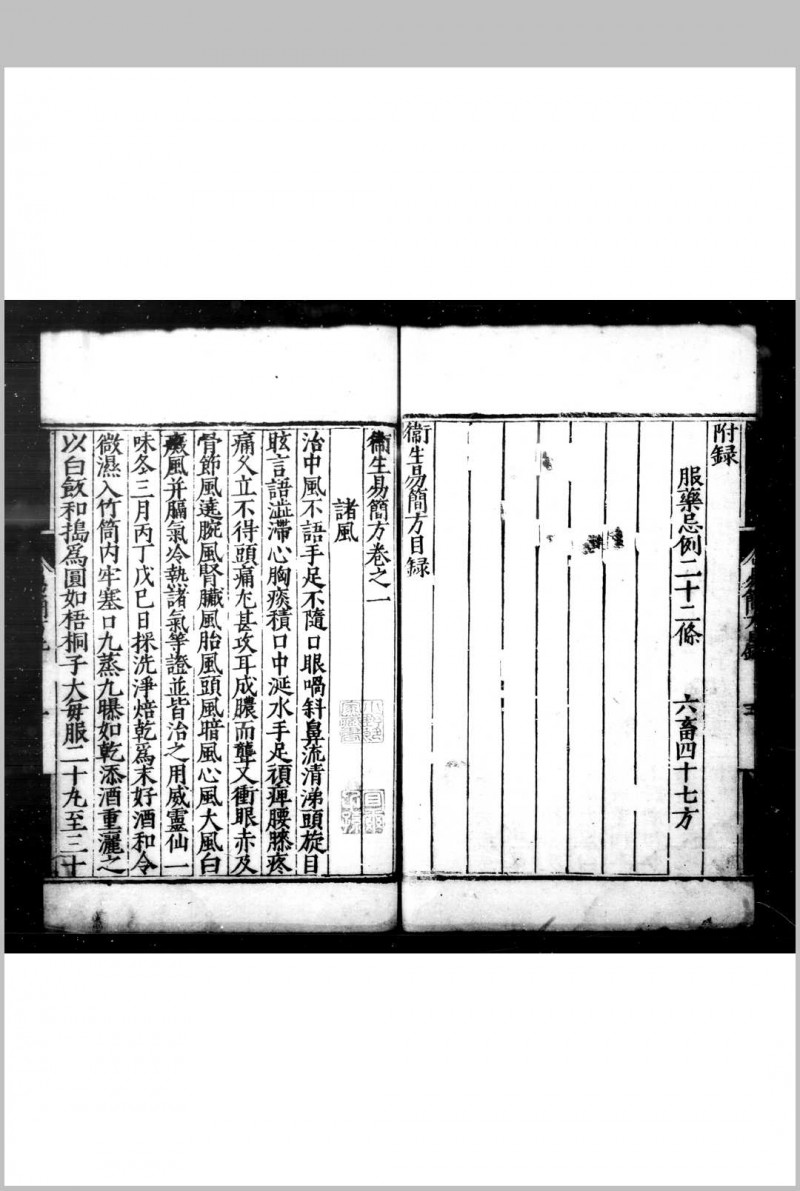 附録
服藥忌例二十二條　六畜四十七方
衞生易簡方目録
衞生易簡方卷之一
諸風
治中風不語手足不隨口眼喎斜鼻流清涕頭旋目
眩言語澁滯心胸痰積口中涎水手足頑痺腰膝疼
痛久立不得頭痛尤甚攻耳成膿而聾又衝眼赤及
骨節風遶腕風腎臟風胎風頭風暗風心風大風白
癜風并膈氣冷執諸氣等證並皆治之用威靈仙一
味冬三月丙丁戊巳日採洗淨焙乾爲末好酒和令
微濕入竹筒内牢塞口九蒸九曝如乾添酒重灑之
以白飯和搗爲圓如梧桐子大每服二十九至三十